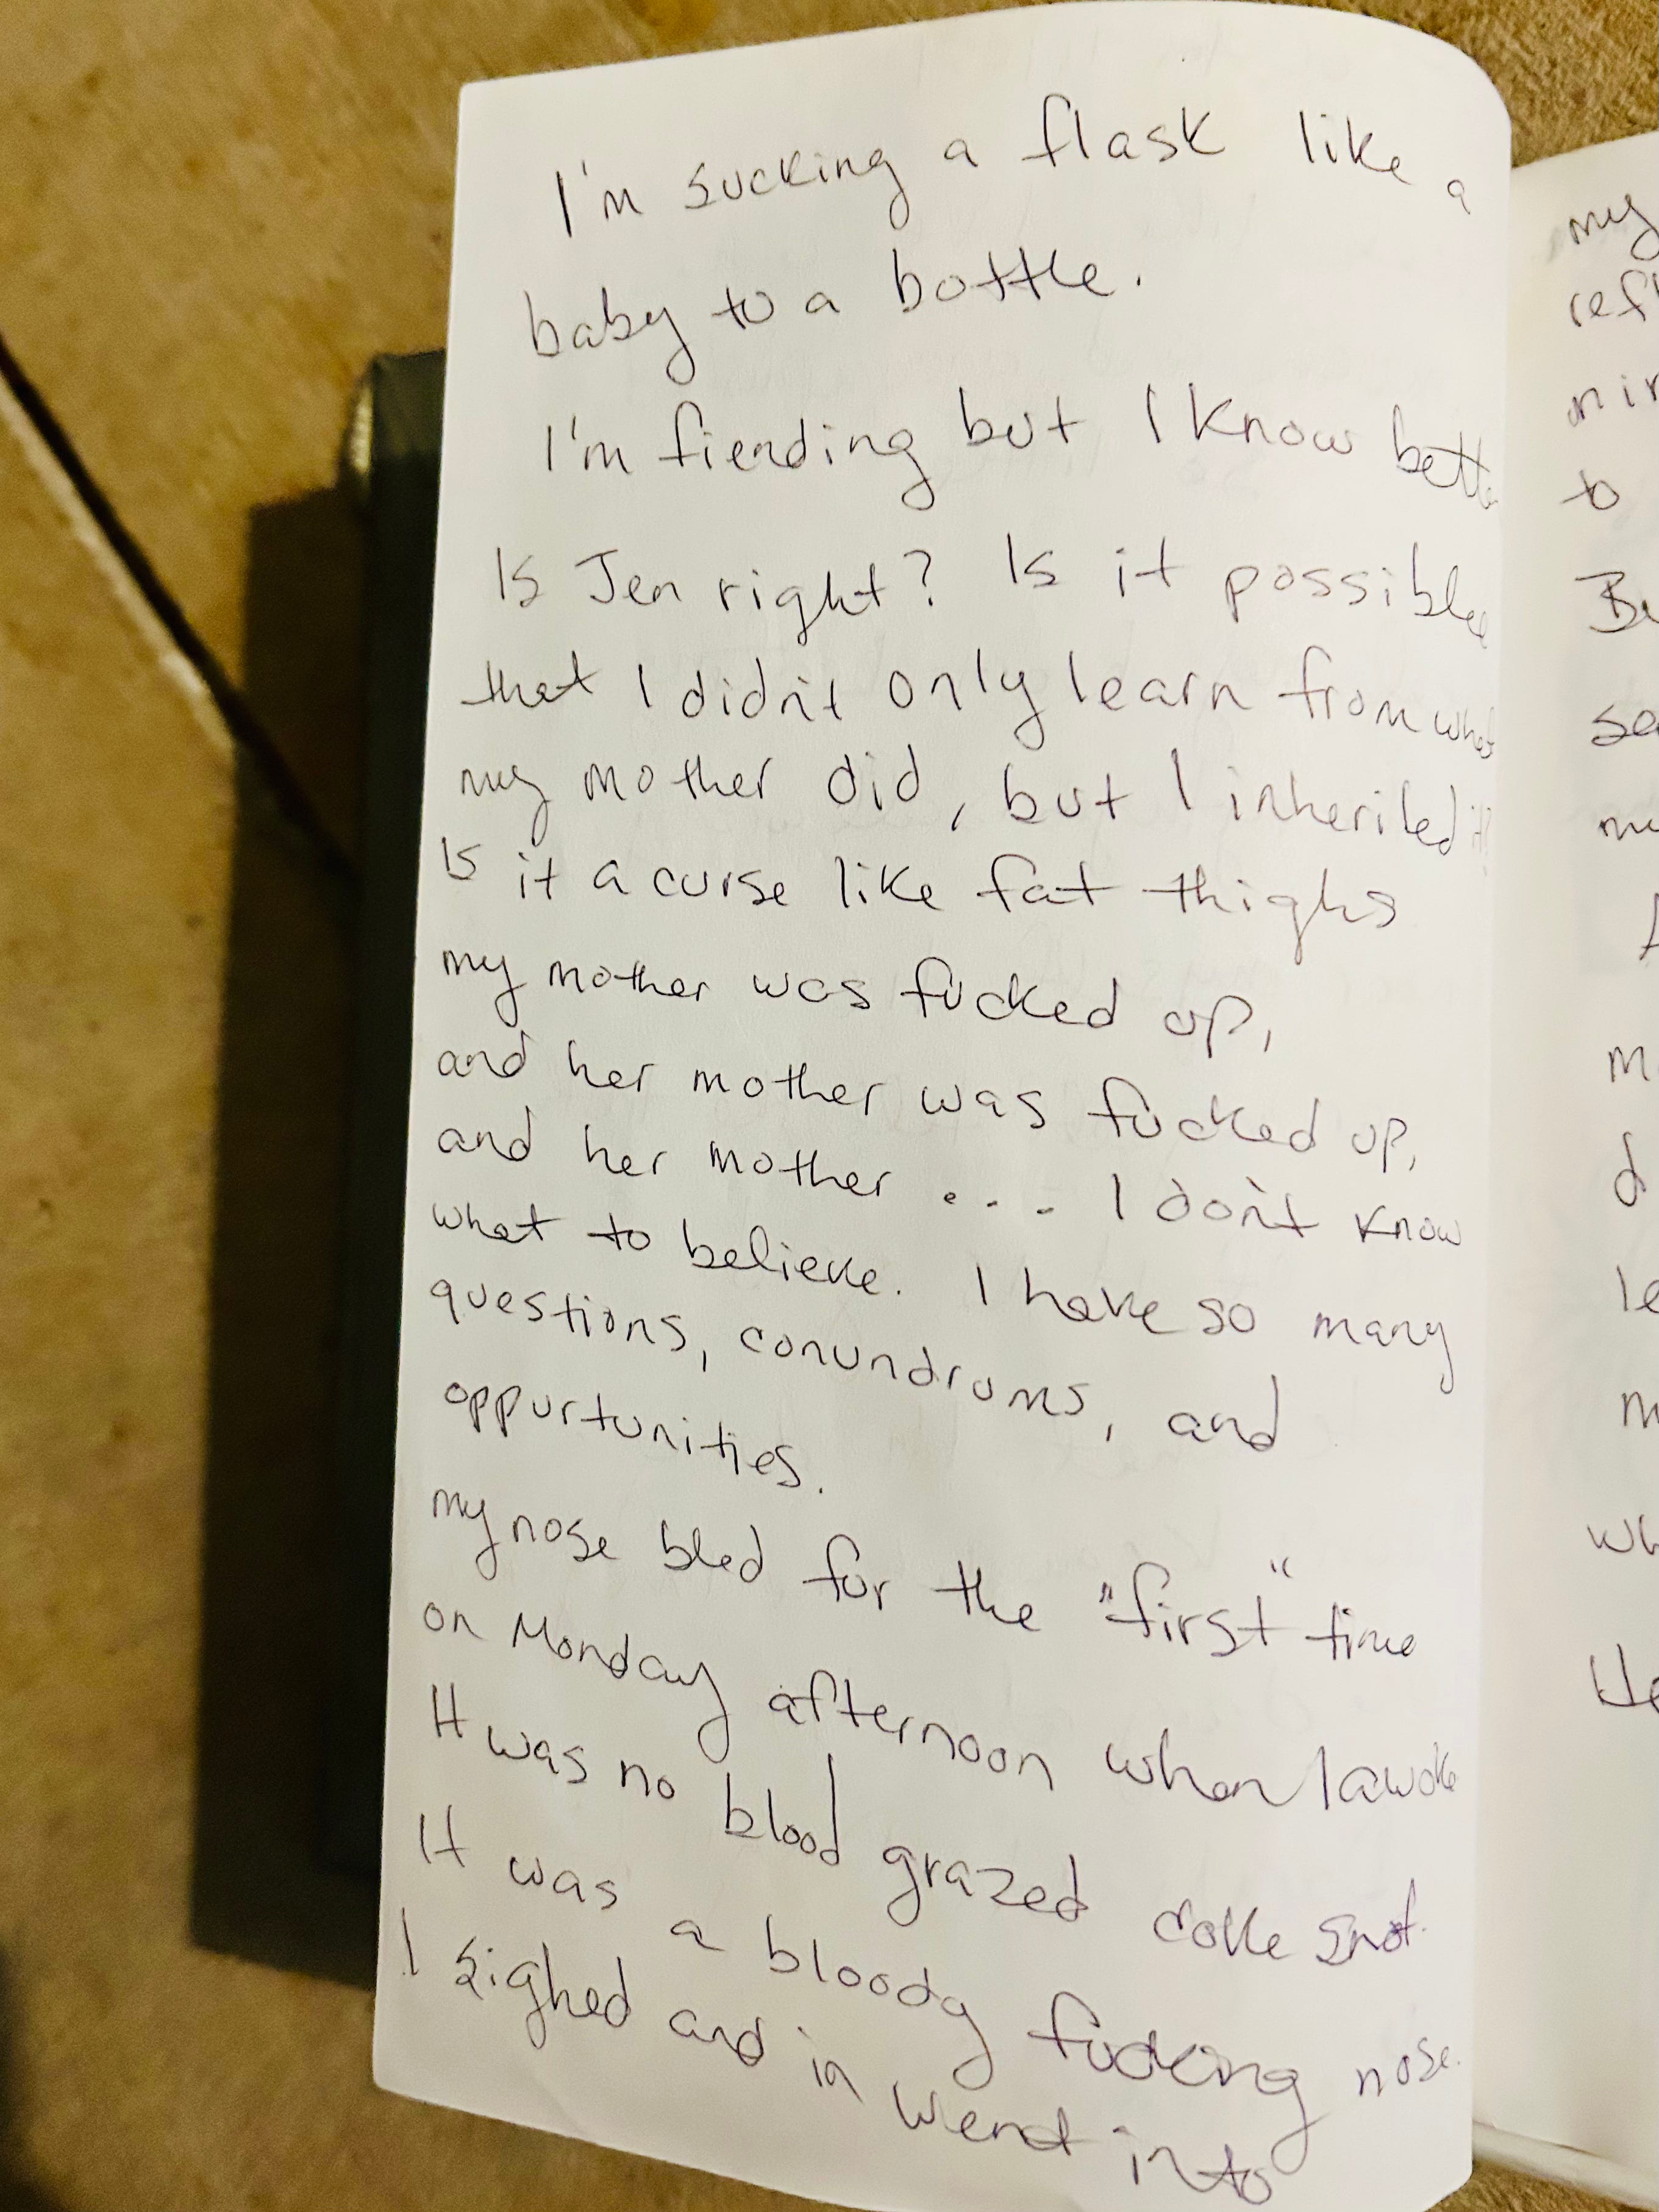 I'm sucking a flask like a
baby to a bottle.
I'm fiending but I know bette
Is Jen right? Is it possible
that I didn't only learn from what
my mother did, but I inherited it?
Is it a curse like fat thighs
my mother was fucked up,
and her mother was fucked up,
and her mother .... I don't know
what to believe. I have so many
questions, conundrums, and
oppurtunities.
my nose bled for the "first" time
on Monday afternoon when I awoke
It was no blood grazed coke snot.
It was a bloody fucking nose.
I sighed and in went into
my
refl
mir
to
Be
se
me
m
d
le
m
wh
He